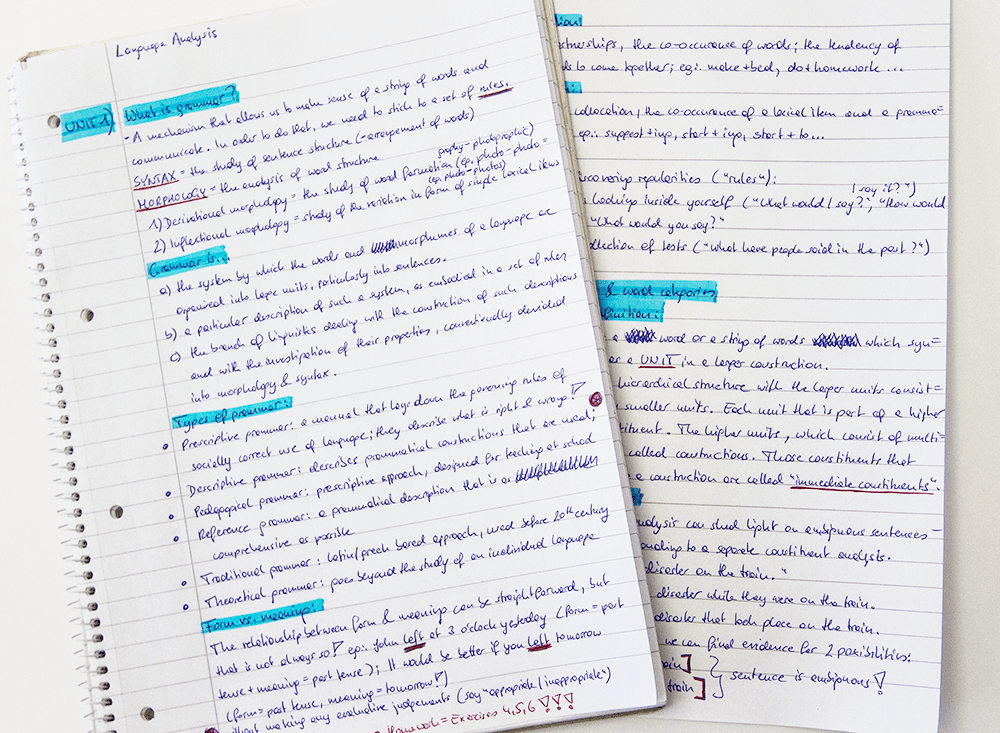 Language Analysis
UNIT 1)
What is grammar?
- A mechanism that allows us to make sense of a string of words and
communicate. In order to do that, we need to stick to a set of rules.
SYNTAX = the study of sentence structure (- arrangement of words)
MORPHOLOGY = the analysis of word structure
graphy - photographic)
1) Derivational morphology = the study of word formation (eg. photo - photo =
(eg. photo - photos)
2) Inflectional morphology = study of the variation in form of single lexical items
Grammar is...
a) the system by which the words and morphemes of a language are
organized into large units, particularly into sentences.
b) a particular description of such a system, as embodied in a set of rules
c) the branch of linguistics dealing with the construction of such descriptions
and with the investigation of their properties, conventionally divided
into morphology & syntax.
Types of grammar:
Prescriptive grammar: a manual that lays down the governing rules of
socially correct use of language; they describe what is right & wrong!
Descriptive grammar: describes grammatical constructions that are used;
Pedagogical grammar: prescriptive approach, designed for teaching at school
Reference grammar: a grammatical description that is as
comprehensive as possible
Traditional grammar: latin/greek based approach, used before 20th century
Theoretical grammar: goes beyond the study of an individual language
Form vs. meaning:
The relationship between form & meaning can be straightforward, but
that is not always so! eg: John left at 3 o'clock yesterday (form = past
tense + meaning = past tense); It would be better if you left tomorrow
(form = past tense, meaning = tomorrow!)
without making any evaluative judgements (say "appropriate / inappropriate")
Homework = Exercises 4, 5, 6 !!!
tnerships, the co-occurance of words; the tendency of
ds to come together; eg: make + bed, do + homework ...
collocation, the co-occurence of a lexical item and a gramma=
eg: suggest + ing, start + ing, start + to...
scovering regularities ("rules"):
I say it?")
Looking inside yourself ("What would I say?", "How would
"What would you say?"
ollection of texts ("what have people said in the past?")
& word categories
finition:
a word or a string of words which syn=
as a UNIT in a larger construction.
hierarchical structure with the larger units consist=
smaller units. Each unit that is part of a higher
tituent. The higher units, which consist of multi=
called constructions. Those constituents that
a construction are called "immediate constituents".
nalysis can shed light on ambiguous sentences -
onding to a separate constituent analysis.
disaster on the train."
disaster while they were on the train.
disaster that took place on the train.
we can find evidence for 2 possibilities:
train]
train]
sentence is ambiguous!